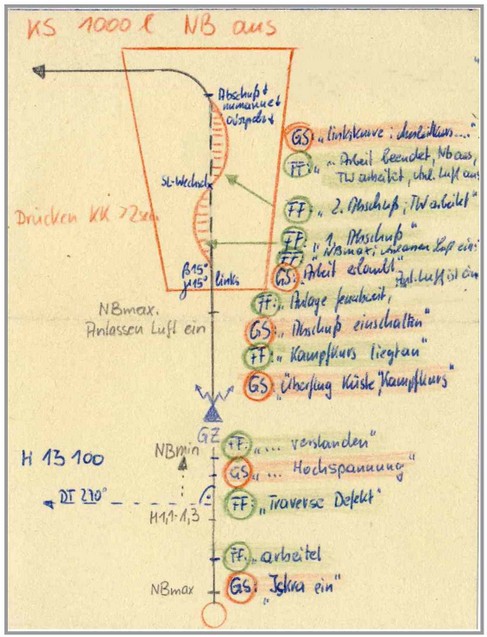 KS 1000 l NB aus
Abschuß
GS: "Linkskurve:
FF: "Arbeit beendet, NB aus,
TW arbeitet, Anl. Luft aus
SL-Wechsel
FF: "2. Abschuß, TW arbeitet"
Drücken KK >2sec.
FF: "1. Abschuß"
FF: "NBmax, Anlassen Luft ein:
GS: "Arbeit erlaubt"
Anl. Luft ist ein
β15°
links
FF: "Anlage feuerbereit,
NBmax.
Anlassen Luft ein
GS: "Abschuß einschalten"
FF: "Kampfkurs liegt an"
GS: "Überflug Küste, Kampfkurs"
GZ
FF: "... verstanden"
NBmin
H 13 100
GS: "... Hochspannung"
DT 270°
FF: "Traverse Defekt"
H1,1-1,3
FF: arbeitet
NBmax
GS: "Iskra ein"